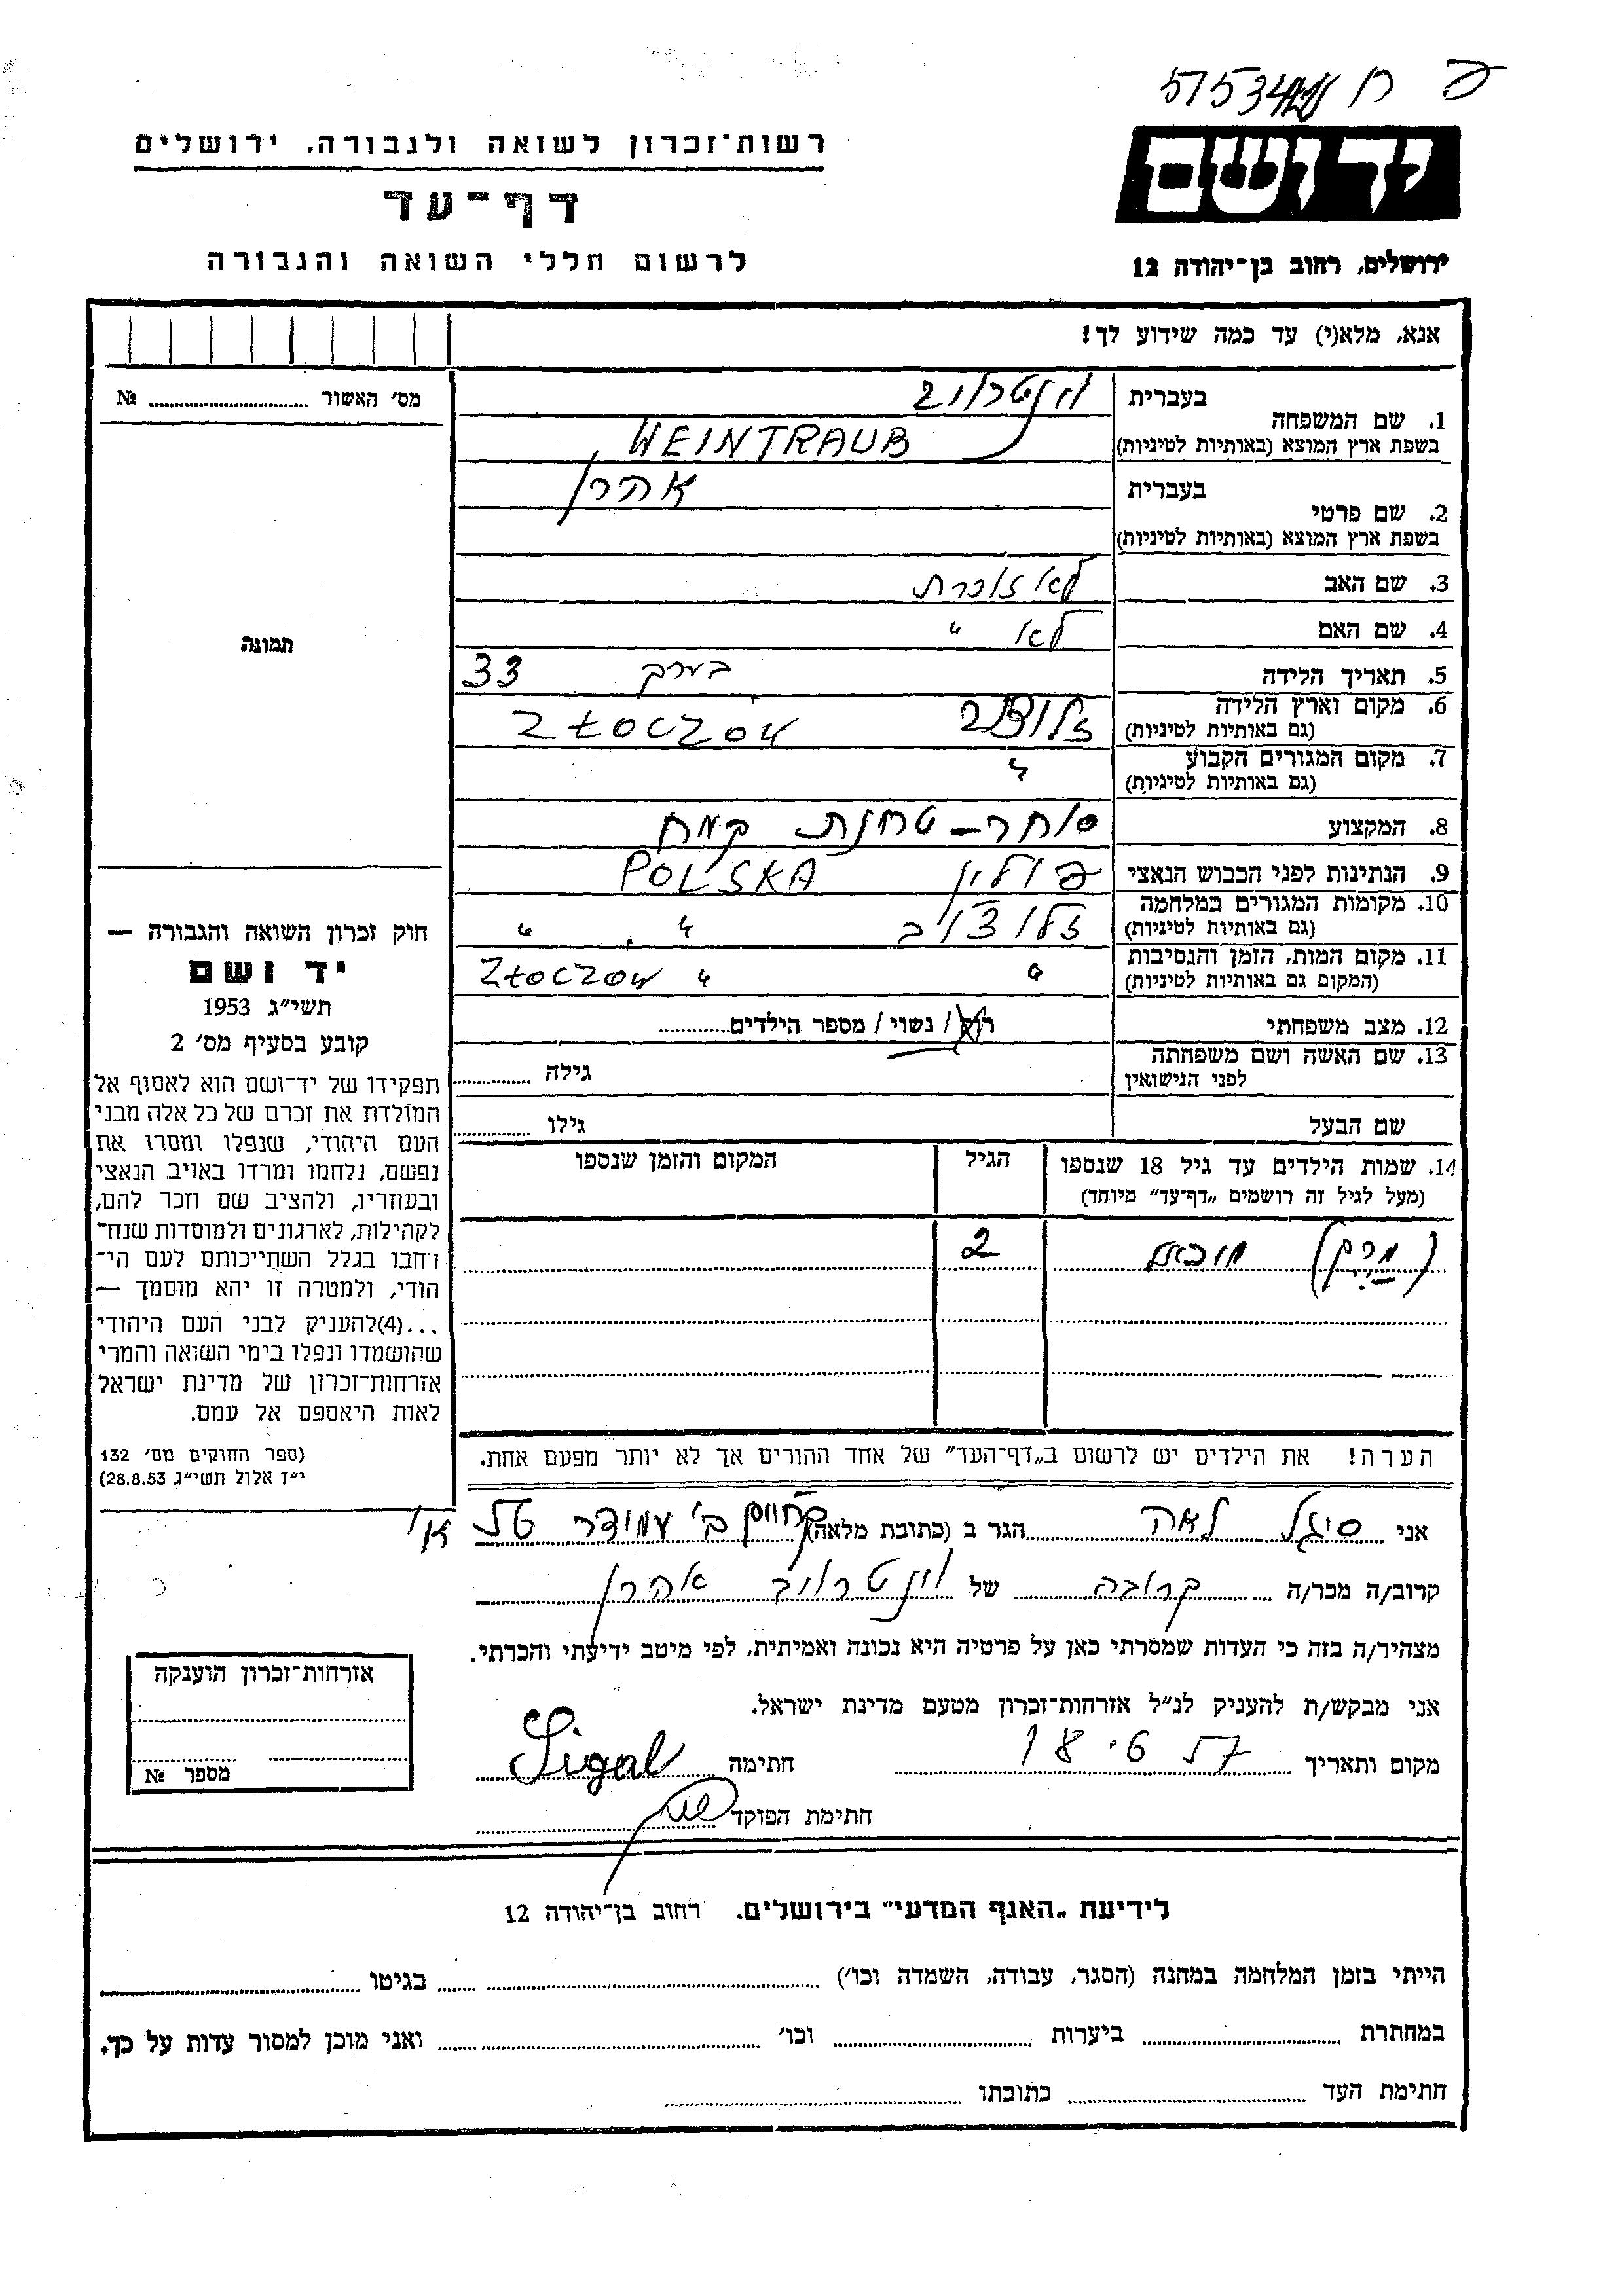 רשות־זכרון לשואה ולגבורה, ירושלים
דף־עד
לרשום חללי השואה והגבורה
יד ושם
ירושלים, רחוב בן־יהודה 12
אנא, מלא(י) עד כמה שידוע לך!
מס׳ האשור № 
1. שם המשפחה
בעברית וינטרויב
בשפת ארץ המוצא (באותיות לטיניות) WEINTRAUB
2. שם פרטי
בעברית אהרן
בשפת ארץ המוצא (באותיות לטיניות)
3. שם האב לא זוכרת
4. שם האם לא "
5. תאריך הלידה בערך 33
6. מקום וארץ הלידה
(גם באותיות לטיניות) זלוצ׳וב ZŁOCZOW
7. מקום המגורים הקבוע
(גם באותיות לטיניות) "
8. המקצוע סוחר – טחנת קמח
9. הנתינות לפני הכבוש הנאצי פולין POLSKA
10. מקומות המגורים במלחמה
(גם באותיות לטיניות) זלוצ׳וב " "
11. מקום המות, הזמן והנסיבות
(המקום גם באותיות לטיניות) " " ZŁOCZOW
12. מצב משפחתי רוק / נשוי / מספר הילדים
13. שם האשה ושם משפחתה
לפני הנישואין גילה
שם הבעל גילו
14. שמות הילדים עד גיל 18 שנספו
(מעל לגיל זה רושמים „דף־עד״ מיוחד)
הגיל
המקום והזמן שנספו
2
הערה! את הילדים יש לרשום ב„דף־העד״ של אחד ההורים אך לא יותר מפעם אחת.
תמונה
חוק זכרון השואה והגבורה —
יד ושם
תשי״ג 1953
קובע בסעיף מס׳ 2
תפקידו של יד־ושם הוא לאסוף אל
המולדת את זכרם של כל אלה מבני
העם היהודי, שנפלו ומסרו את
נפשם, נלחמו ומרדו באויב הנאצי
ובעוזריו, ולהציב שם וזכר להם,
לקהילות, לארגונים ולמוסדות שנח־
רחבו בגלל השתייכותם לעם הי־
הודי, ולמטרה זו יהא מוסמך —
...(4)להעניק לבני העם היהודי
שהושמדו ונפלו בימי השואה והמרי
אזרחות־זכרון של מדינת ישראל
לאות היאספם אל עמם.
(ספר החוקים מס׳ 132
י״ז אלול תשי״ג 28.8.53)
אני סיגל לאה הגר ב (כתובת מלאה) ב׳ עמידר
קרוב/ה מכר/ה קרובה של וינטרויב אהרן
מצהיר/ה בזה כי העדות שמסרתי כאן על פרטיה היא נכונה ואמיתית, לפי מיטב ידיעתי והכרתי.
אני מבקש/ת להעניק לנ״ל אזרחות־זכרון מטעם מדינת ישראל.
מקום ותאריך חתימה Sigal
חתימת הפוקד
אזרחות־זכרון הוענקה
מספר №
לידיעת „האגף המדעי״ בירושלים. רחוב בן־יהודה 12
הייתי בזמן המלחמה במחנה (הסגר, עבודה, השמדה וכו׳) בגיטו
במחתרת ביערות וכו׳ ואני מוכן למסור עדות על כך.
חתימת העד כתובתו